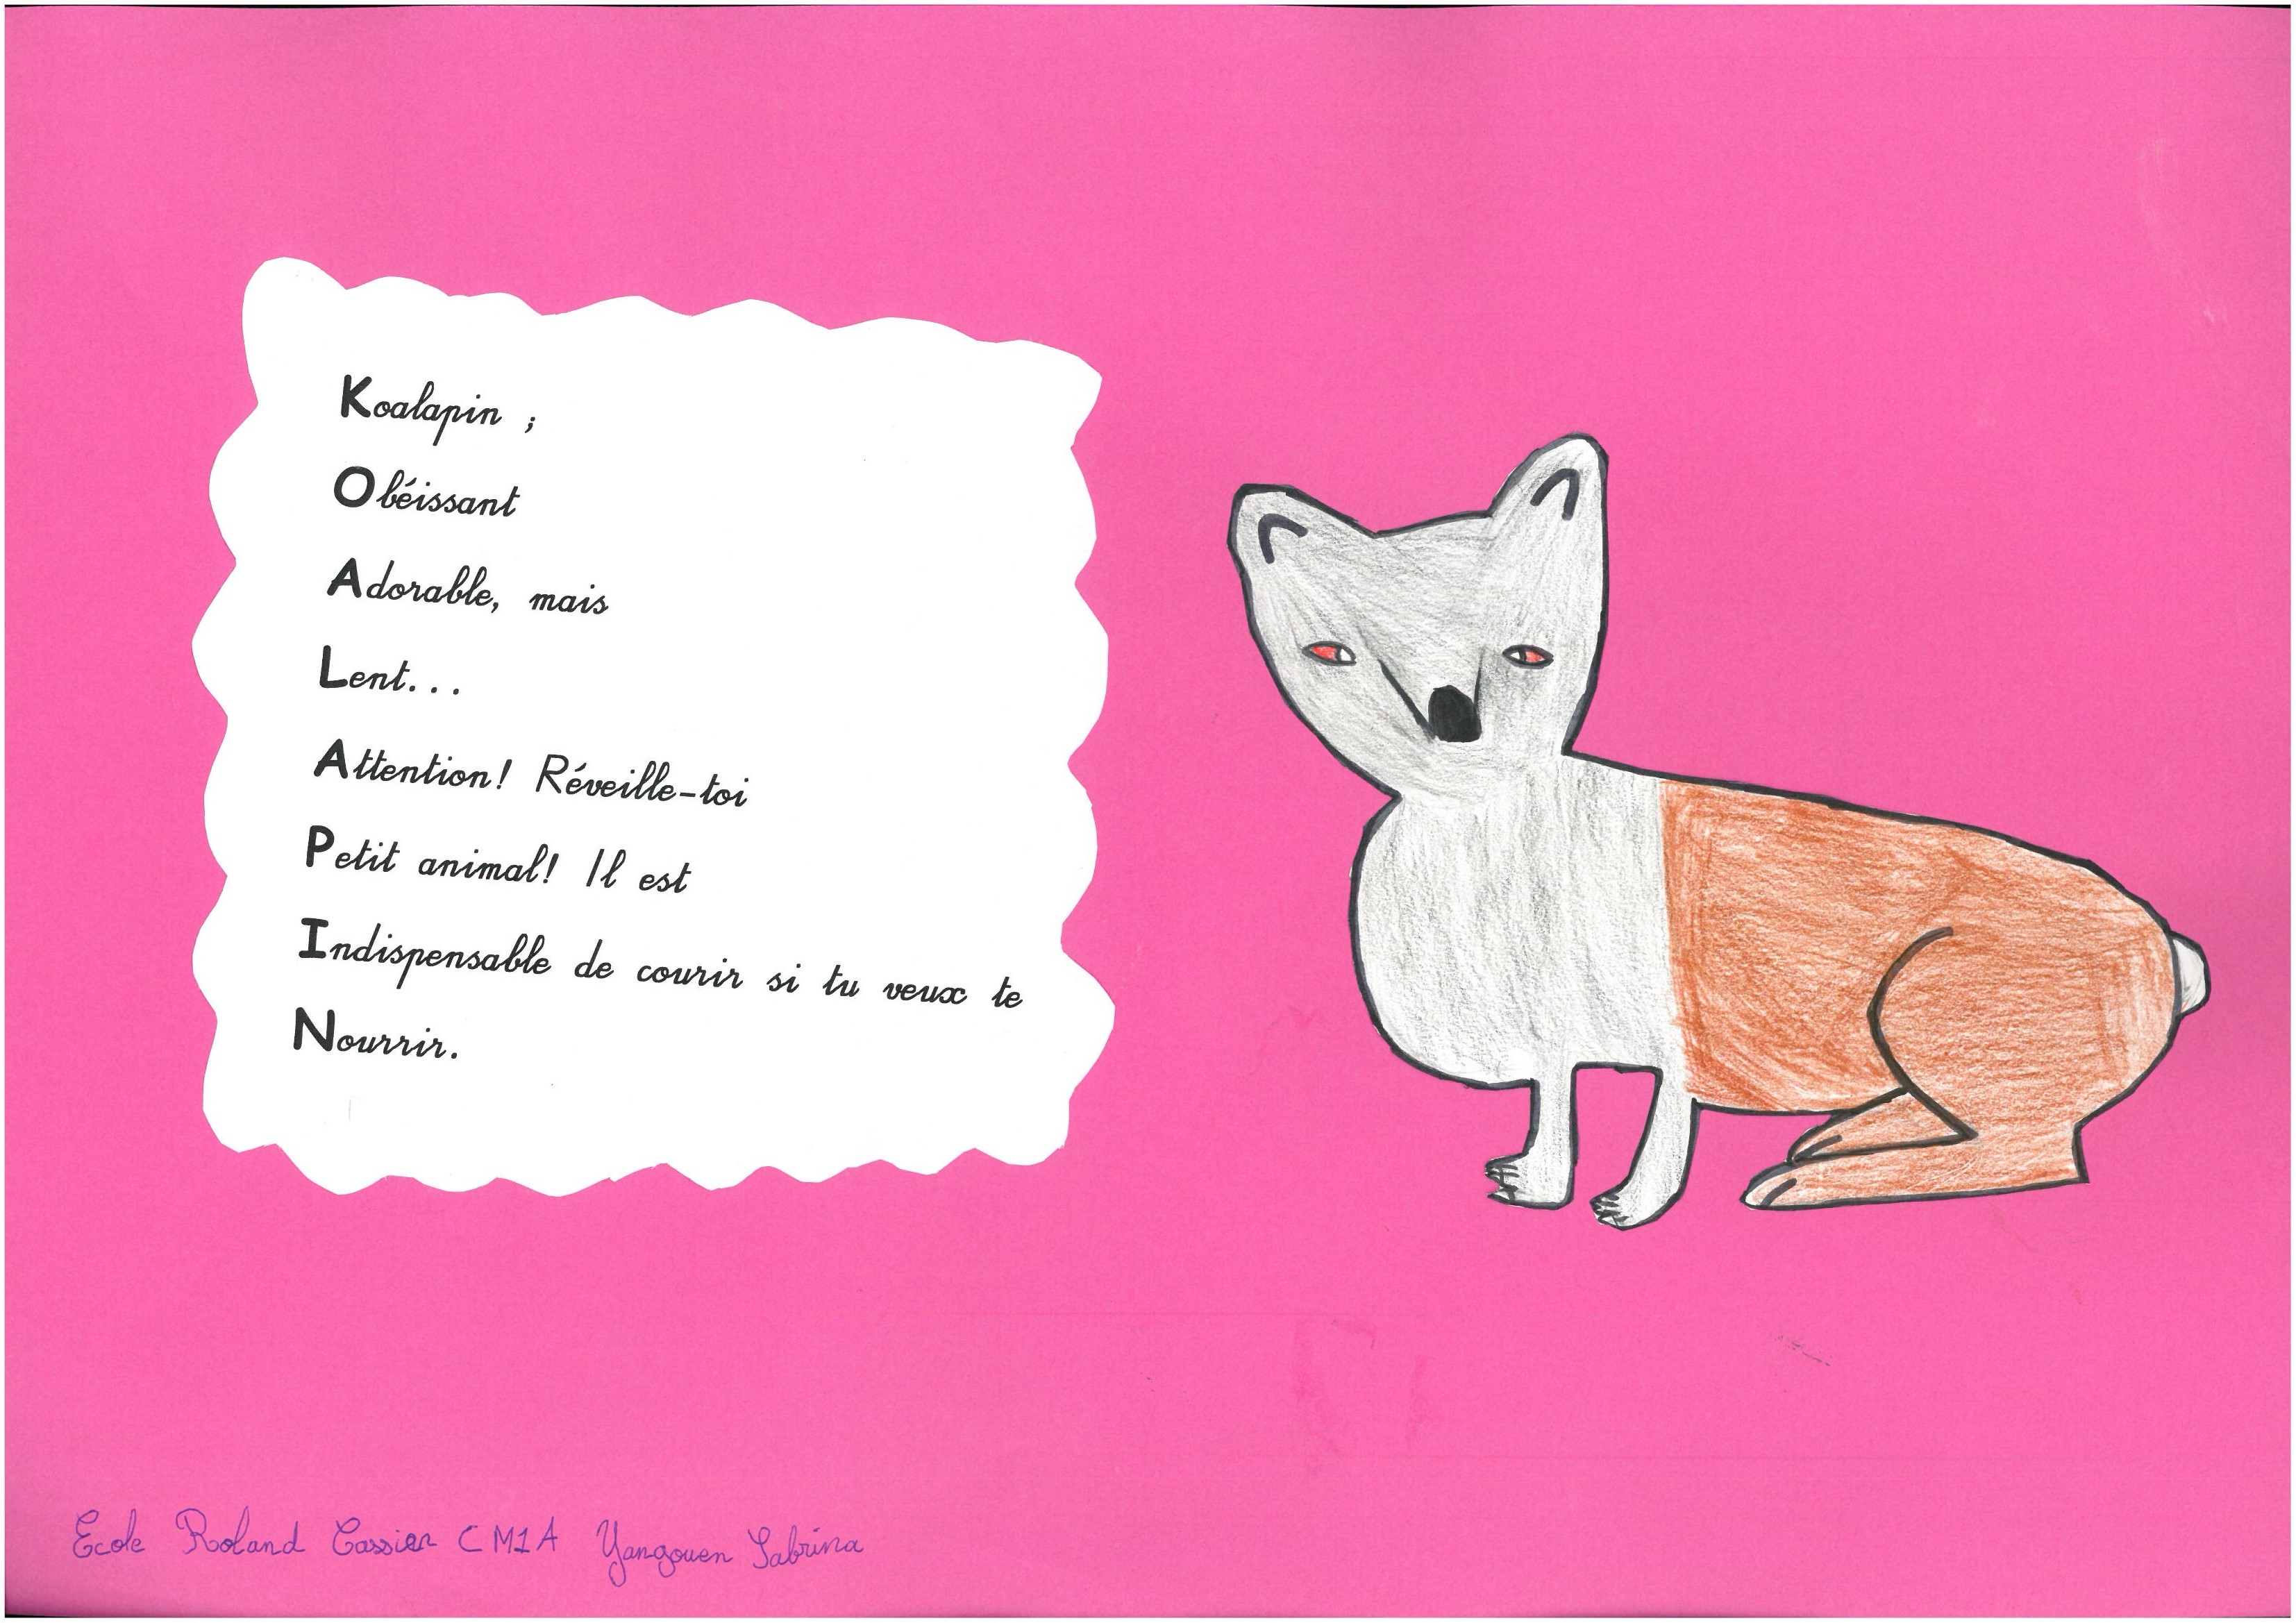 Koalapin ;
Obéissant
Adorable, mais
Lent...
Attention! Réveille-toi
Petit animal! Il est
Indispensable de courir si tu veux te
Nourrir.
Ecole Roland Cassier CM1A Yangouen Sabrina